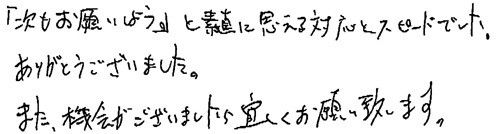 「次もお願いしよう」と素直に思える対応とスピードでした。
ありがとうございました。
また、機会がございましたら宜しくお願い致します。